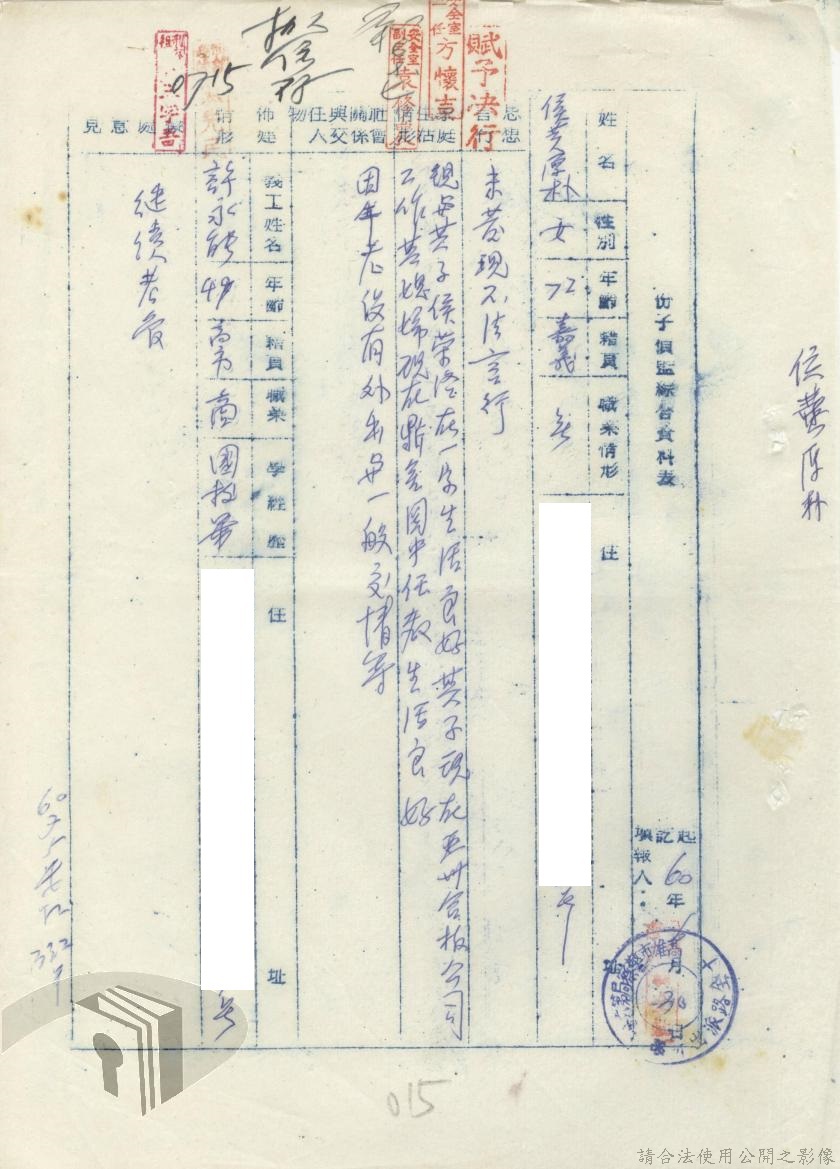 侯黃厚朴
份子偵監綜合資料表
起記60年 月30日
填報人：
姓名
性別
年齡
籍貫
職業情形
住
址
侯黃厚朴
女
72
嘉義
無
思想言行
未發現不法言行
家庭生活情形
現与其子侯荣 在一字生活良好其子現在亚州合板公司
工作其媳婦現在鼎金國中任教生活良好
社會關係與交往人物
因年老没有外出与一般交情 等
佈建情形
義工姓名
年齡
籍貫
職業
學經歷
住
址
許永能
49
高市
商
國校畢
号
擬處意見
继续考管
賦予決行
安全室主任方懷
安全室副主任袁
0715
60
322
015
請合法使用公開之影像